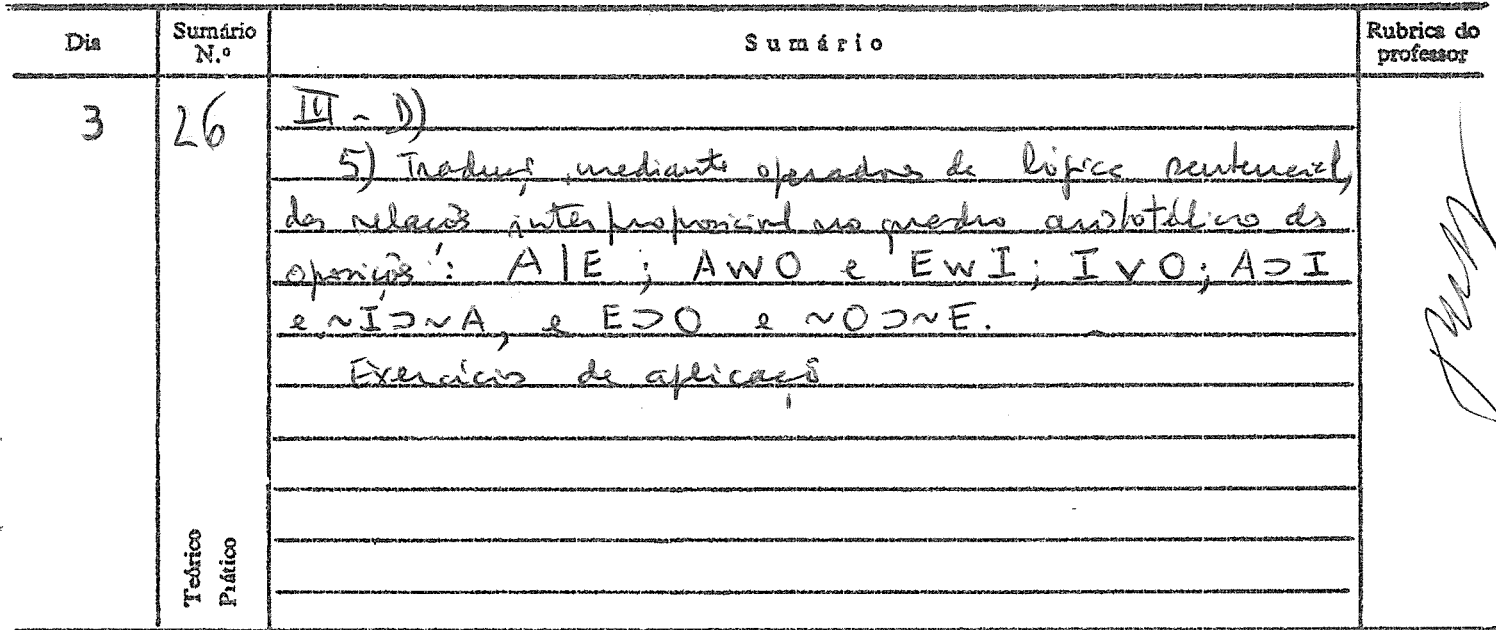 Dia
Sumário N.º
Sumário
Rubrica do professor
3
26
III - D)
5) Traduçõ, mediante operadores de lógica sentencial,
das relações interproposicionl no quadro aristotélico das
oposições: A | E ; A w O e E w I ; I v O ; A ⊃ I
e ~I ⊃ ~A, e E ⊃ O e ~O ⊃ ~E.
Exercícios de aplicaçõ
Teórico
Prático